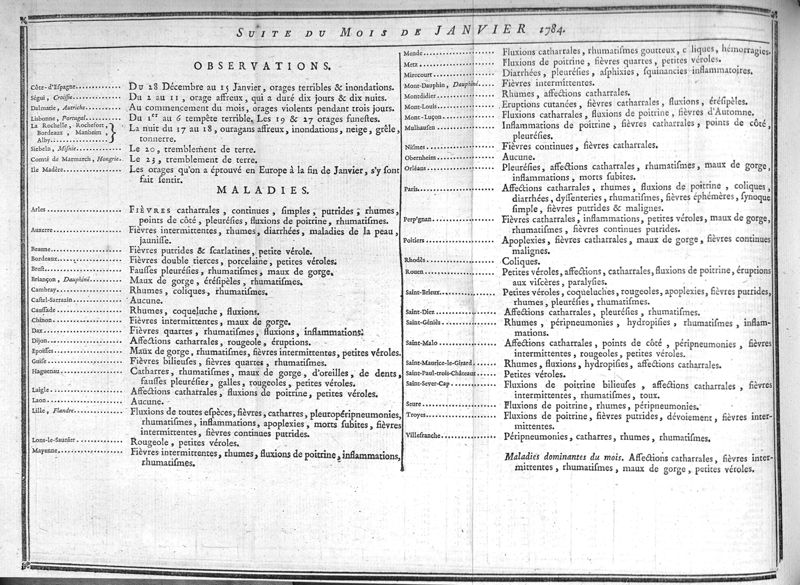 SUITE DU MOIS DE JANVIER 1784.
OBSERVATIONS.
Côte-d'Espagne............ Du 28 Décembre au 15 Janvier, orages terribles & inondations.
Ségui, Croisie............ Du 2 au 11, orage affreux, qui a duré dix jours & dix nuits.
Dalmatie, Autriche............ Au commencement du mois, orages violents pendant trois jours.
Lisbonne, Portugal............ Du 1er au 6 tempête terrible, Les 19 & 27 orages funeſtes.
La Rochelle, Rochefort,
Bordeaux, Manheim,
Alby............ } La nuit du 17 au 18, ouragans affreux, inondations, neige, grêle,
tonnerre.
Siebeln, Miſnie............ Le 20, tremblement de terre.
Comté de Marmatch, Hongrie. Le 23, tremblement de terre.
Ile Madère............ Les orages qu'on a éprouvé en Europe à la fin de Janvier, s'y ſont
fait ſentir.
MALADIES.
Arles............ FIÈVRES catharrales, continues, ſimples, putrides; rhumes,
points de côté, pleuréſies, fluxions de poitrine, rhumatiſmes.
Auxerre............ Fièvres intermittentes, rhumes, diarrhées, maladies de la peau,
jauniſſe.
Beaune............ Fièvres putrides & ſcarlatines, petite vérole.
Bordeaux............ Fièvres double tierces, porcelaine, petites véroles.
Breſt............ Fauſſes pleuréſies, rhumatiſmes, maux de gorge.
Briançon, Dauphiné............ Maux de gorge, éréſipèles, rhumatiſmes.
Cambray............ Rhumes, coliques, rhumatiſmes.
Caſtel-Sarrasin............ Aucune.
Cauſſade............ Rhumes, coqueluche, fluxions.
Chinon............ Fièvres intermittentes, maux de gorge.
Dax............ Fièvres quartes, rhumatiſmes, fluxions, inflammations.
Dijon............ Affections catharrales, rougeole, éruptions.
Epoiſſes............ Maux de gorge, rhumatiſmes, fièvres intermittentes, petites véroles.
Guiſe............ Fièvres bilieuſes, fièvres quartes, rhumatiſmes.
Haguenau............ Catharres, rhumatiſmes, maux de gorge, d'oreilles, de dents,
fauſſes pleuréſies, galles, rougeoles, petites véroles.
Laigle............ Affections catharrales, fluxions de poitrine, petites véroles.
Laon............ Aucune.
Lille, Flandre............ Fluxions de toutes eſpèces, fièvres, catharres, pleuropéripneumonies,
rhumatiſmes, inflammations, apoplexies, morts ſubites, fièvres
intermittentes, fièvres continues putrides.
Lons-le-Saunier............ Rougeole, petites véroles.
Mayenne............ Fièvres intermittentes, rhumes, fluxions de poitrine, inflammations,
rhumatiſmes.
Mende............ Fluxions catharrales, rhumatiſmes goutteux, c liques, hémorragies.
Metz............ Fluxions de poitrine, fièvres quartes, petites véroles.
Mirecourt............ Diarrhées, pleuréſies, aſphixies, ſquinancies inflammatoires.
Mont-Dauphin, Dauphiné.... Fièvres intermittentes.
Montdidier............ Rhumes, affections catharrales.
Mont-Louis............ Eruptions cutanées, fièvres catharrales, fluxions, éréſipèles.
Mont-Luçon............ Fluxions catharrales, fluxions de poitrine, fièvres d'Automne.
Mulhauſen............ Inflammations de poitrine, fièvres catharrales, points de côté,
pleuréſies.
Niſmes............ Fièvres continues, fièvres catharrales.
Obernheim............ Aucune.
Orléans............ Pleuréſies, affections catharrales, rhumatiſmes, maux de gorge,
inflammations, morts ſubites.
Paris............ Affections catharrales, rhumes, fluxions de poitrine, coliques,
diarrhées, dyſſenteries, rhumatiſmes, fièvres éphémères, ſynoque
ſimple, fièvres putrides & malignes.
Perp'gnan............ Fièvres catharrales, inflammations, petites véroles, maux de gorge,
rhumatiſmes, fièvres continues putrides.
Poitiers............ Apoplexies, fièvres catharrales, maux de gorge, fièvres continues
malignes.
Rhodès............ Coliques.
Rouen............ Petites véroles, affections, catharrales, fluxions de poitrine, éruptions
aux viſcères, paralyſies.
Saint-Brieux............ Petites véroles, coqueluches, rougeoles, apoplexies, fièvres putrides,
rhumes, pleuréſies, rhumatiſmes.
Saint-Diez............ Affections catharrales, pleuréſies, rhumatiſmes.
Saint-Géniès............ Rhumes, péripneumonies, hydropiſies, rhumatiſmes, inflam-
mations.
Saint-Malo............ Affections catharrales, points de côté, péripneumonies, fièvres
intermittentes, rougeoles, petites véroles.
Saint-Maurice-le-Girard...... Rhumes, fluxions, hydropiſies, affections catharrales.
Saint-Paul-trois-Châteaux...... Petites véroles.
Saint-Sever-Cap............ Fluxions de poitrine bilieuſes, affections catharrales, fièvres
intermittentes, rhumatiſmes, toux.
Seure............ Fluxions de poitrine, rhumes, péripneumonies.
Troyes............ Fluxions de poitrine, fièvres putrides, dévoiement, fièvres inter-
mittentes.
Villefranche............ Péripneumonies, catharres, rhumes, rhumatiſmes.
Maladies dominantes du mois. Affections catharrales, fièvres inter-
mittentes, rhumatiſmes, maux de gorge, petites véroles.